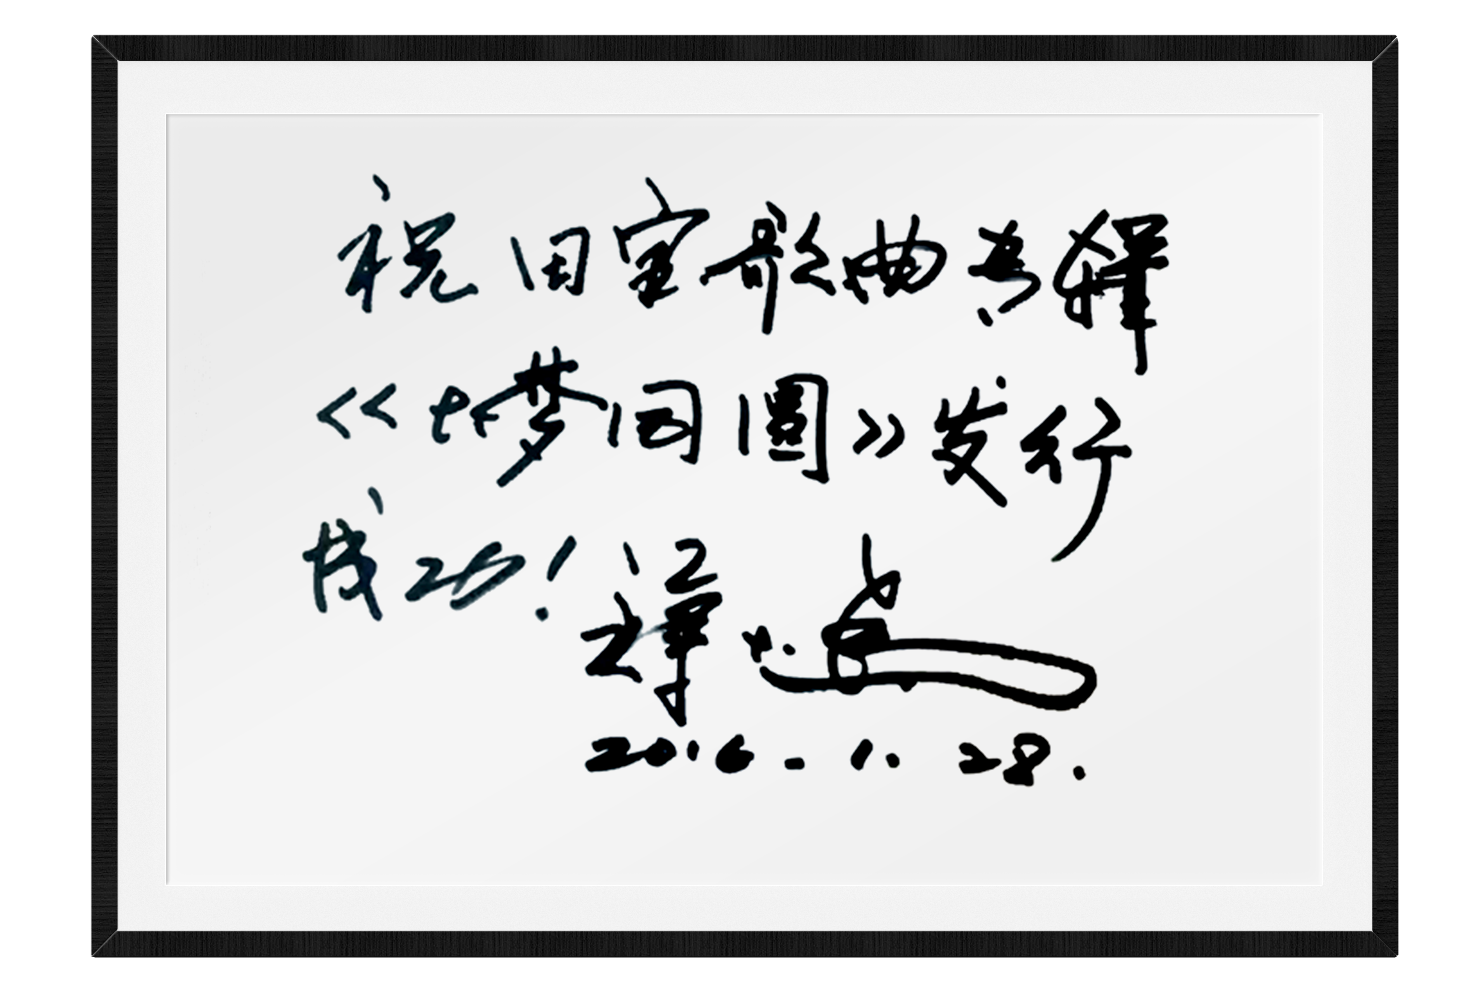 祝田宝歌曲专辑
《梦同圓》发行
成功！
2016.1.28.